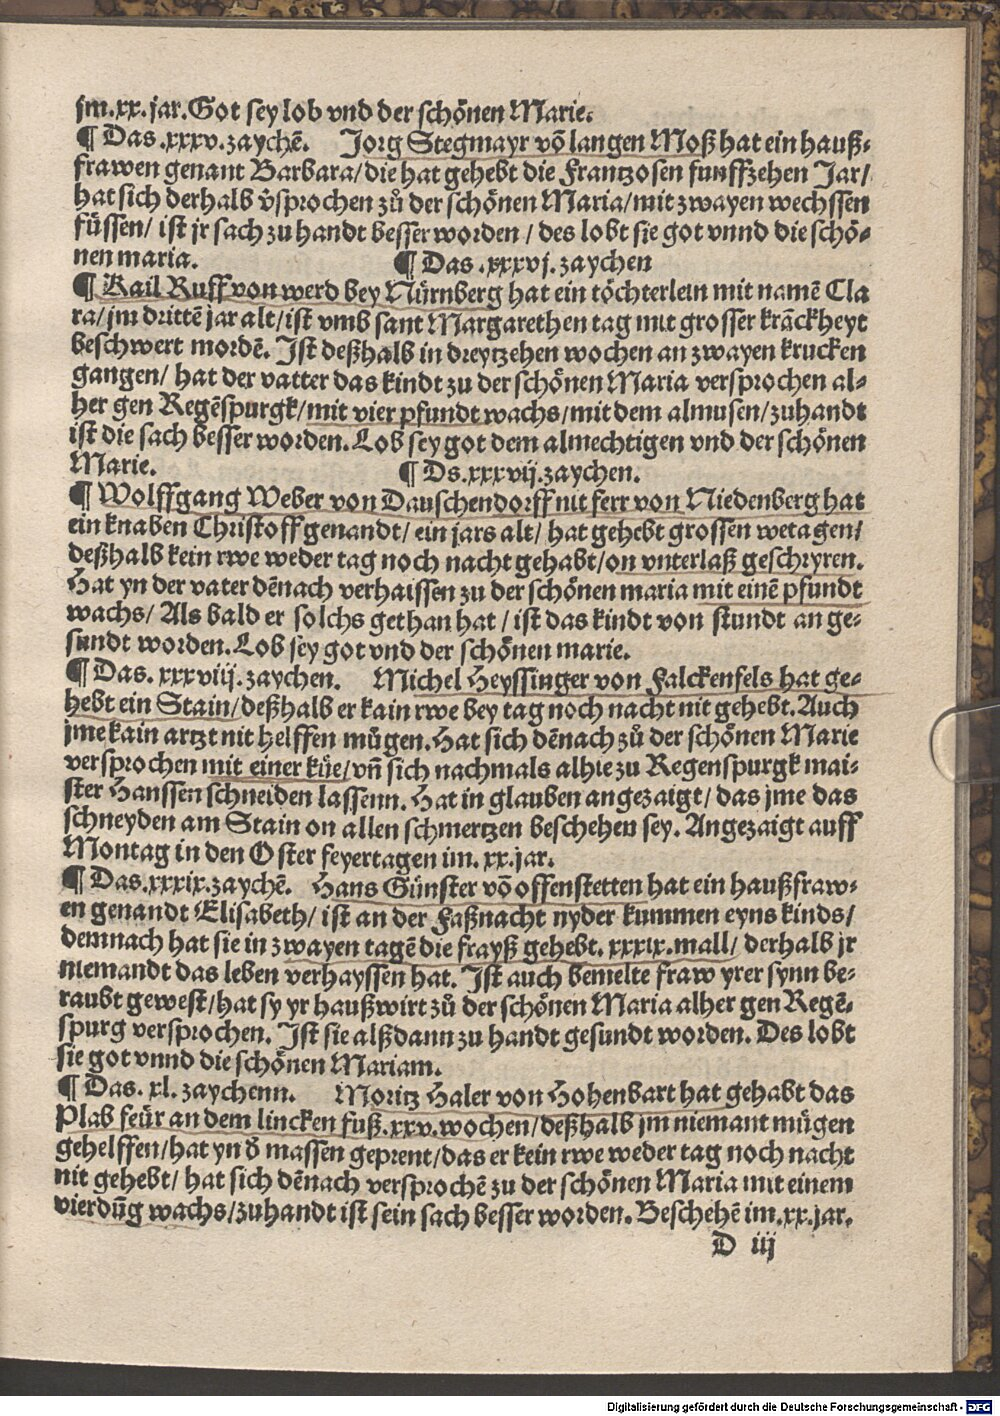 jm.xx.jar. Got sey lob vnd der schönen Marie.
¶ Das .xxxv. zaychē. Jorg Stegmayr vō langen Moß hat ein hauß-
frawen genant Barbara/ die hat gehebt die Frantzosen funffzehen Jar/
hat sich derhalb v̂sprochen zů der schönen Maria/ mit zwayen wechssen
füssen/ ist jr sach zu handt besser worden / des lobt sie got vnnd die schö-
nen maria. ¶ Das .xxxvj. zaychen
¶ Kail Ruff von werd bey Nürnberg hat ein töchterlein mit namē Cla
ra/ jm drittē jar alt/ ist vmb sant Margarethen tag mit grosser krāckheyt
beschwert mordē. Ist deßhalb in dreytzehen wochen an zwayen krucken
gangen/ hat der vatter das kindt zu der schönen Maria versprochen al-
her gen Regēspurgk/ mit vier pfundt wachs/ mit dem almusen/ zuhandt
ist die sach besser worden. Lob sey got dem almechtigen vnd der schönen
Marie. ¶ Ds.xxxvij. zaychen.
¶ Wolffgang Weber von Dauschendorff nit ferr von Niedenberg hat
ein knaben Christoff genandt/ ein jars alt/ hat gehebt grossen wetagen/
deßhalb kein rwe weder tag noch nacht gehabt/ on vnterlaß geschryren.
Hat yn der vater dēnach verhaissen zu der schönen maria mit einē pfundt
wachs/ Als bald er solchs gethan hat / ist das kindt von stundt an ge-
sundt worden. Lob sey got vnd der schönen marie.
¶ Das. xxxviij. zaychen. Michel Heyssinger von Falckenfels hat ge-
hebt ein Stain/ deßhalb er kain rwe bey tag noch nacht nit gehebt. Auch
jme kain artzt nit helffen mügen. Hat sich dēnach zů der schönen Marie
versprochen mit einer küe/ vn̄ sich nachmals alhie zu Regenspurgk mai-
ster Hanssen schneiden lassenn. Hat in glauben angezaigt/ das jme das
schneyden am Stain on allen schmertzen beschehen sey. Angezaigt auff
Montag in den Oster feyertagen im. xx. jar.
¶ Das.xxxix. zaychē. Hans Günster vō offenstetten hat ein haußfraw-
en genandt Elisabeth/ ist an der Faßnacht nyder kummen eyns kinds/
demnach hat sie in zwayen tagē die frayß gehebt. xxxix. mall/ derhalb jr
niemandt das leben verhayssen hat. Ist auch bemelte fraw yrer synn be-
raubt gewest/ hat sy yr haußwirt zů der schönen Maria alher gen Regē-
spurg versprochen. Ist sie alßdann zu handt gesundt worden. Des lobt
sie got vnnd die schönen Mariam.
¶ Das. xl. zaychenn. Moritz Haler von Hohenbart hat gehabt das
Plab feür an dem lincken fuß. xxv. wochen/ deßhalb jm niemant mügen
gehelffen/ hat yn ð massen geprent/ das er kein rwe weder tag noch nacht
nit gehebt/ hat sich dēnach versprochē zu der schönen Maria mit einem
vierdūg wachs/ zuhandt ist sein sach besser worden. Beschehē im.xx. jar.
D iij
Digitalisierung gefördert durch die Deutsche Forschungsgemeinschaft - DFG